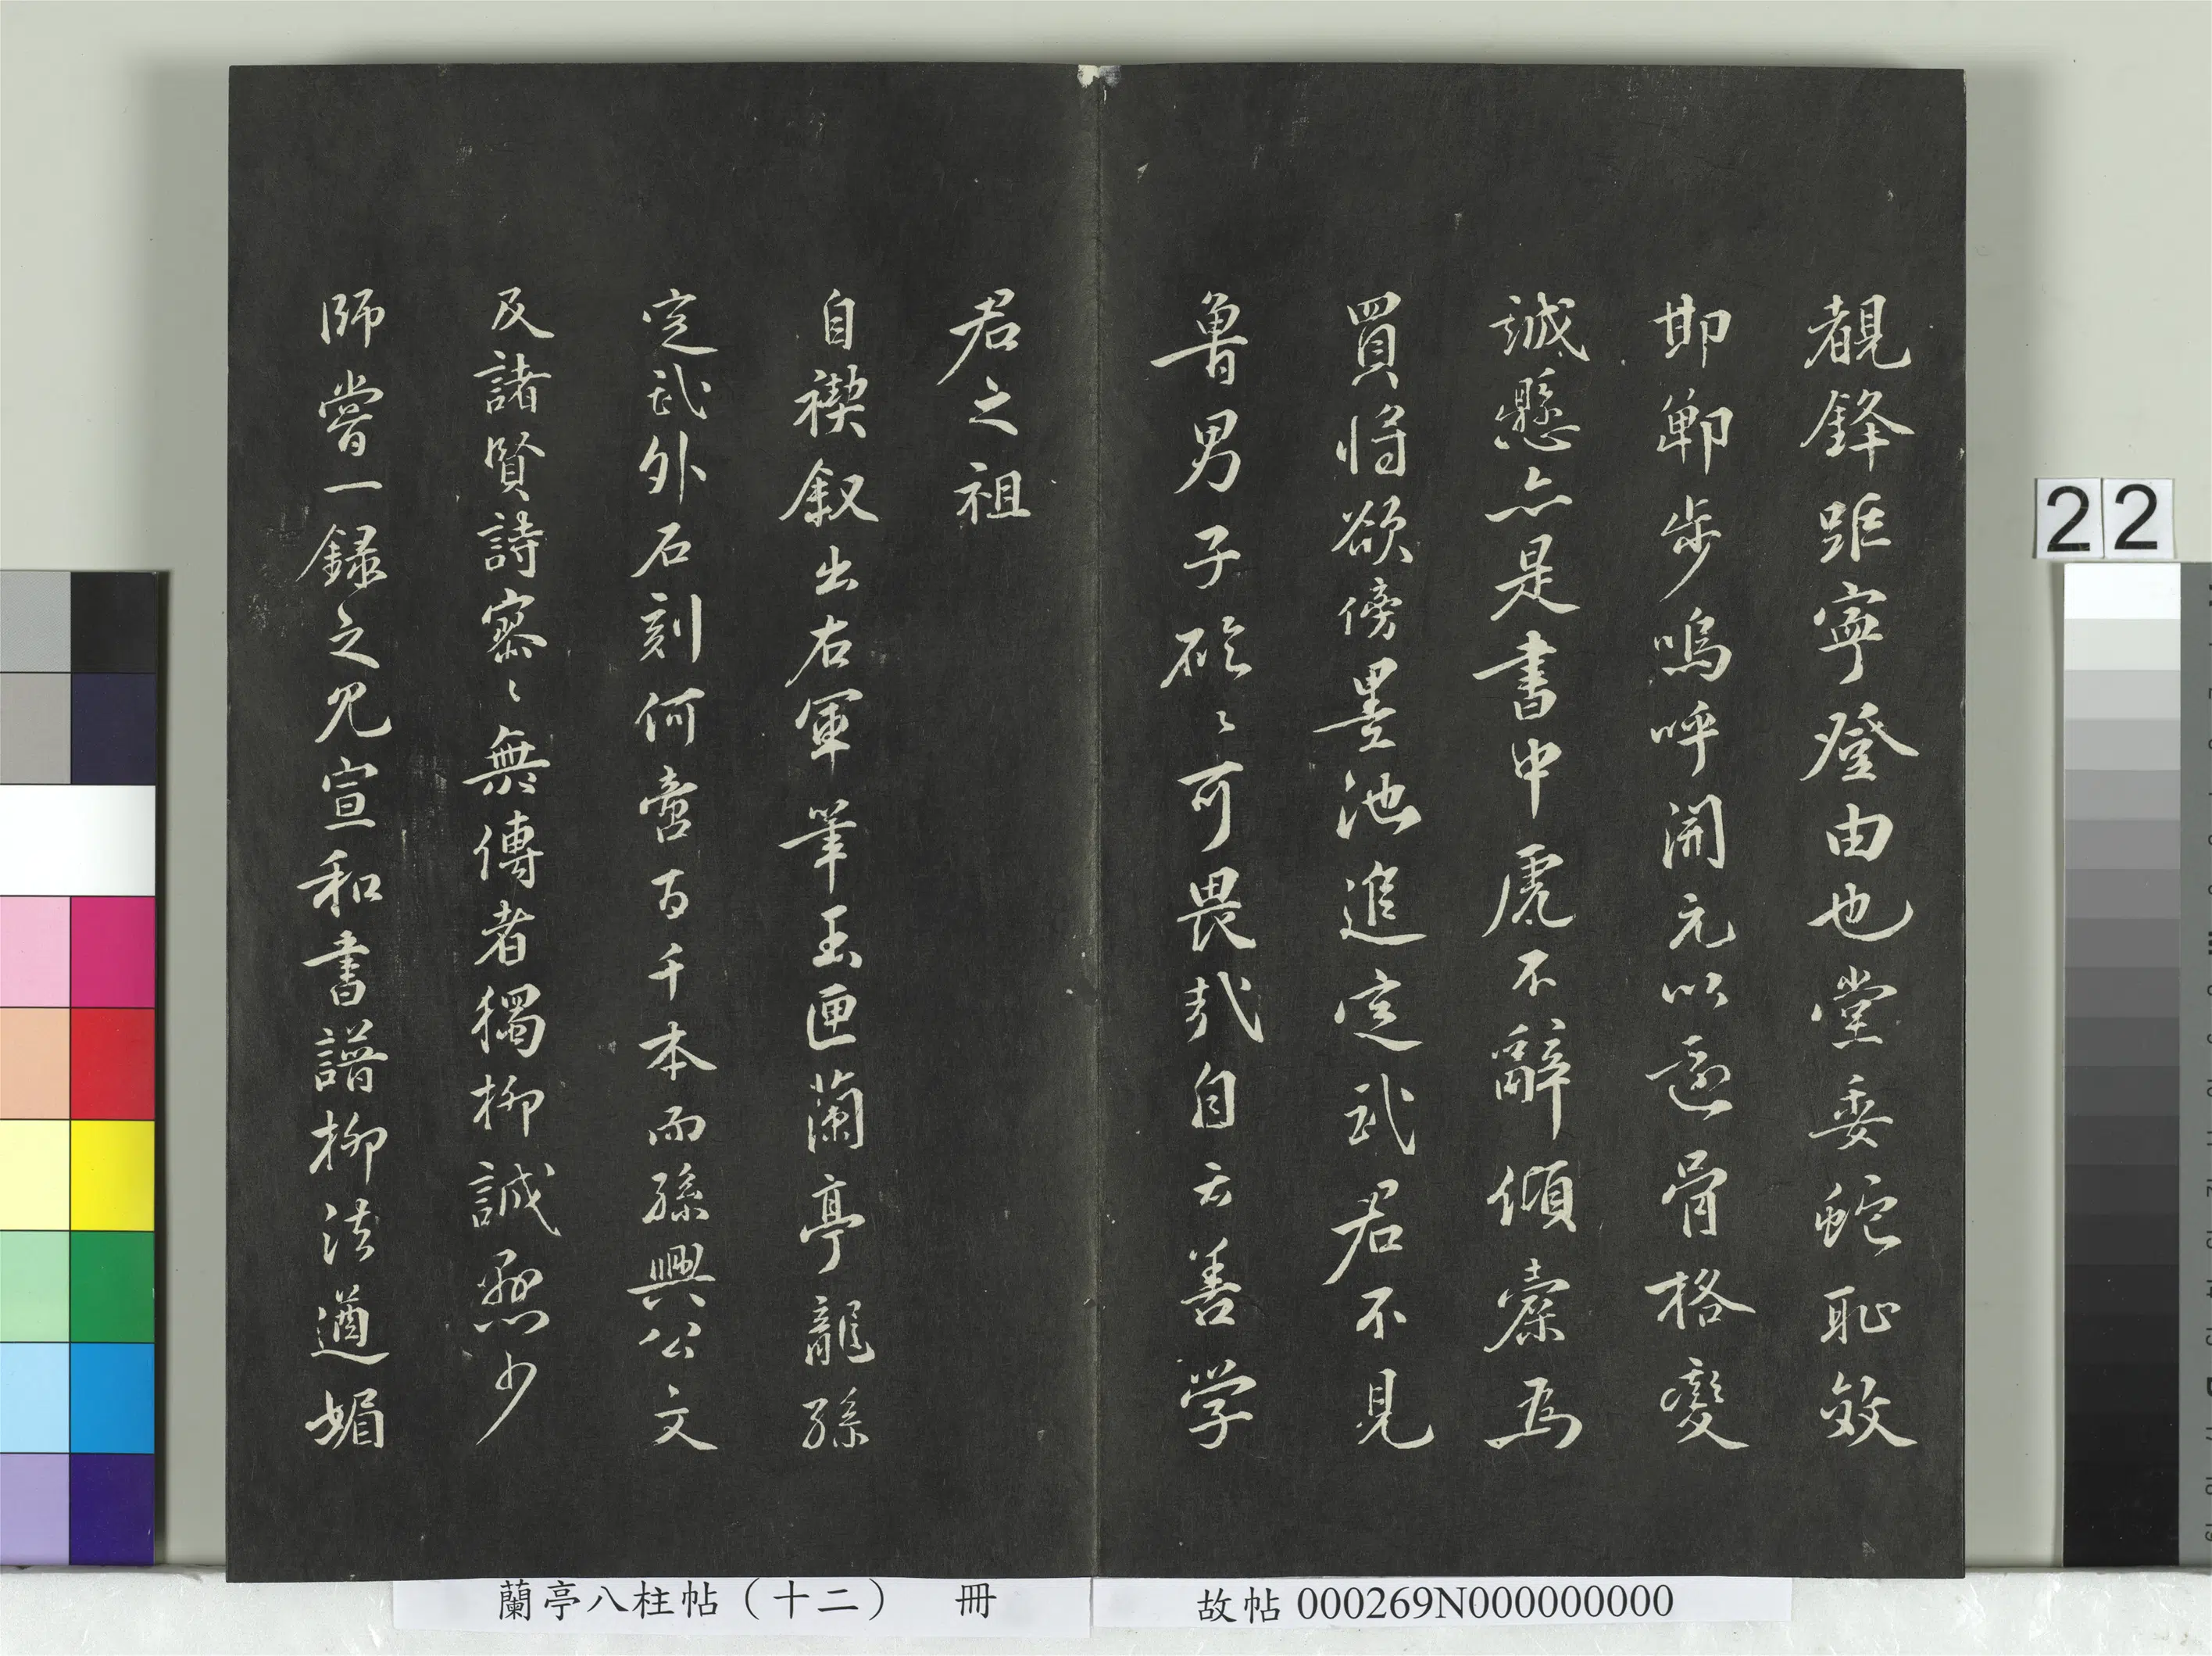 覩鋒距寧登由也堂委蛇恥效
邯鄲步嗚呼開元以還骨格變
誠懸亦是書中虎不辭傾橐為
買將欲傍墨池進定武君不見
魯男子硁〻可畏哉自云善学
君之祖
自禊敘出右軍筆玉匣蘭亭龍孫
定武外石刻何啻百千本而孫興公文
及諸賢詩寥〻無傳者獨柳誠懸少
師嘗一錄之見宣和書譜柳法遒媚
22
蘭亭八柱帖（十二） 冊
故帖 000269N000000000